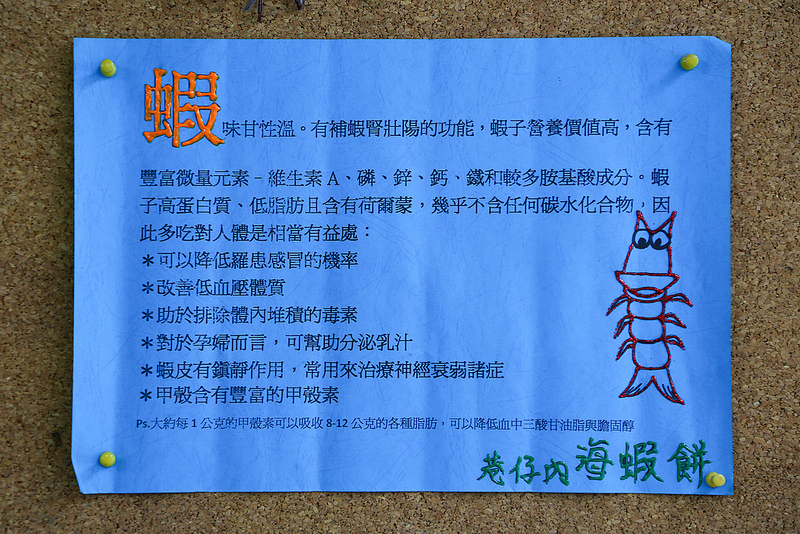 蝦味甘性溫。有補蝦腎壯陽的功能，蝦子營養價值高，含有
豐富微量元素–維生素 A、磷、鋅、鈣、鐵和較多胺基酸成分。蝦
子高蛋白質、低脂肪且含有荷爾蒙，幾乎不含任何碳水化合物，因
此多吃對人體是相當有益處：
＊可以降低羅患感冒的機率
＊改善低血壓體質
＊助於排除體內堆積的毒素
＊對於孕婦而言，可幫助分泌乳汁
＊蝦皮有鎮靜作用，常用來治療神經衰弱諸症
＊甲殼含有豐富的甲殼素
Ps.大約每 1 公克的甲殼素可以吸收 8-12 公克的各種脂肪，可以降低血中三酸甘油脂與膽固醇
巷仔內海蝦餅